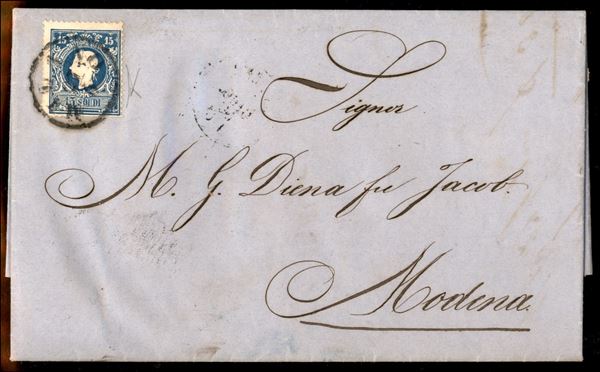 15 15
SOLDI
Signor
M. G. Diena fu Jacob.
Modena.